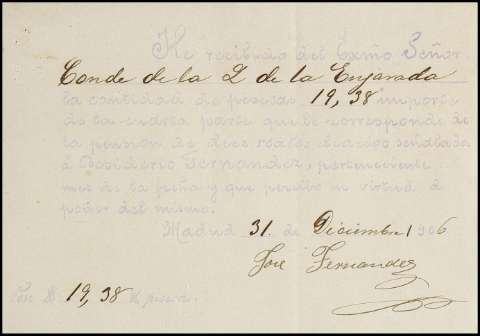 He recibido del Exmo Señor
Conde de la E de la Enjarada
la cantidad de pesetas 19,38 importe
de la cuarta parte que le corresponde de
la pensión de diez reales diarios señalada
á Desiderio Fernandez, perteneciente
mes de la fecha y que percibo en virtud de
poder del mismo.
Madrid 31 de Diciembre 1906
José Fernandez
Son 19,38